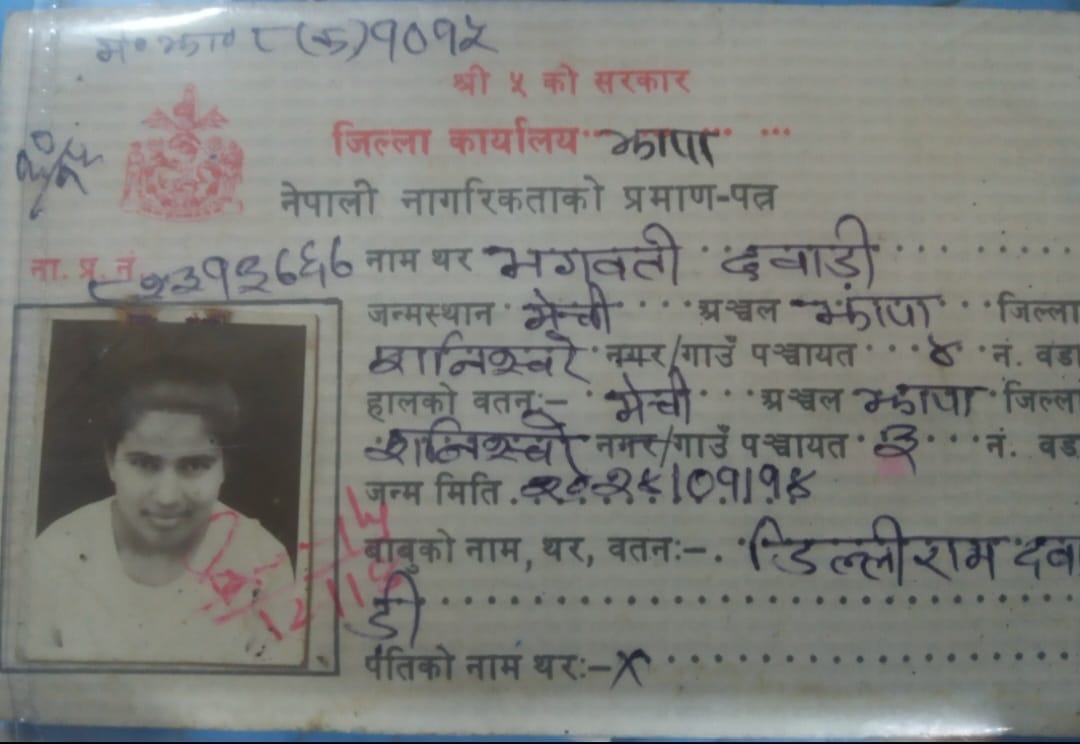 म॰ झा॰ ८ (क) १०१५
श्री ५ को सरकार
जिल्ला कार्यालय झापा
नेपाली नागरिकताको प्रमाण-पत्र
ना. प्र. नं.
नाम थर भगवती दवाडी
जन्मस्थान मेची अञ्चल झापा जिल्ला
शनिश्चरे नगर/गाउँ पञ्चायत ४ नं. वडा
हालको वतनः- मेची अञ्चल झापा जिल्ला
शनिश्चरे नगर/गाउँ पञ्चायत ३ नं. वडा
जन्म मिति २०२५।०१।१४
बाबुको नाम, थर, वतनः- डिल्लीराम दवा
डी
पतिको नाम थरः- X